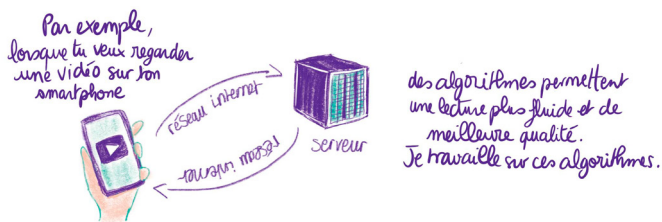 Par exemple,
lorsque tu veux regarder
une vidéo sur ton
smartphone
réseau internet
réseau internet
serveur
des algorithmes permettent
une lecture plus fluide et de
meilleure qualité.
Je travaille sur ces algorithmes.